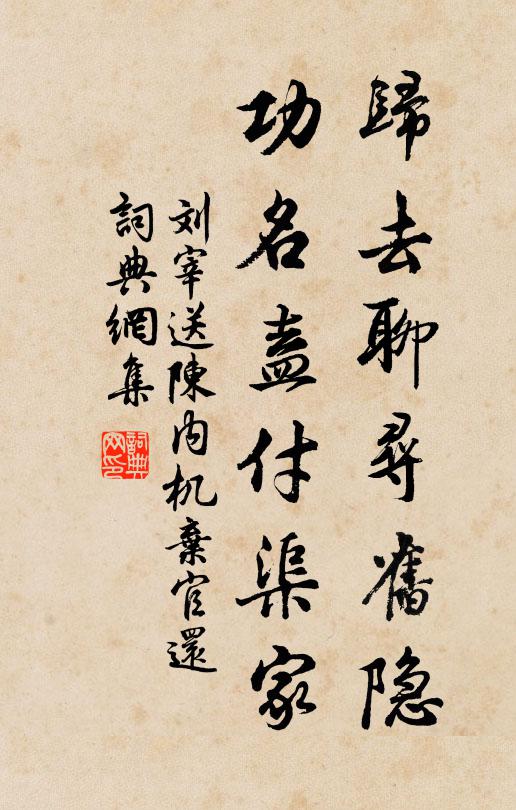 歸去聊尋舊隐
功名盍付渠家
刘宰送陳内机棄官還
詞典網集
詞典
网印